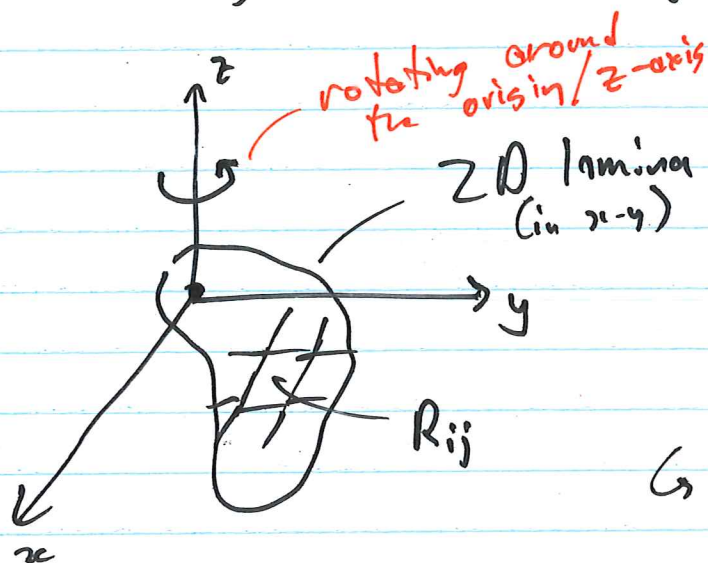 z
rotating around
the origin/z-axis
2D lamina
(in x-y)
y
Rij
x